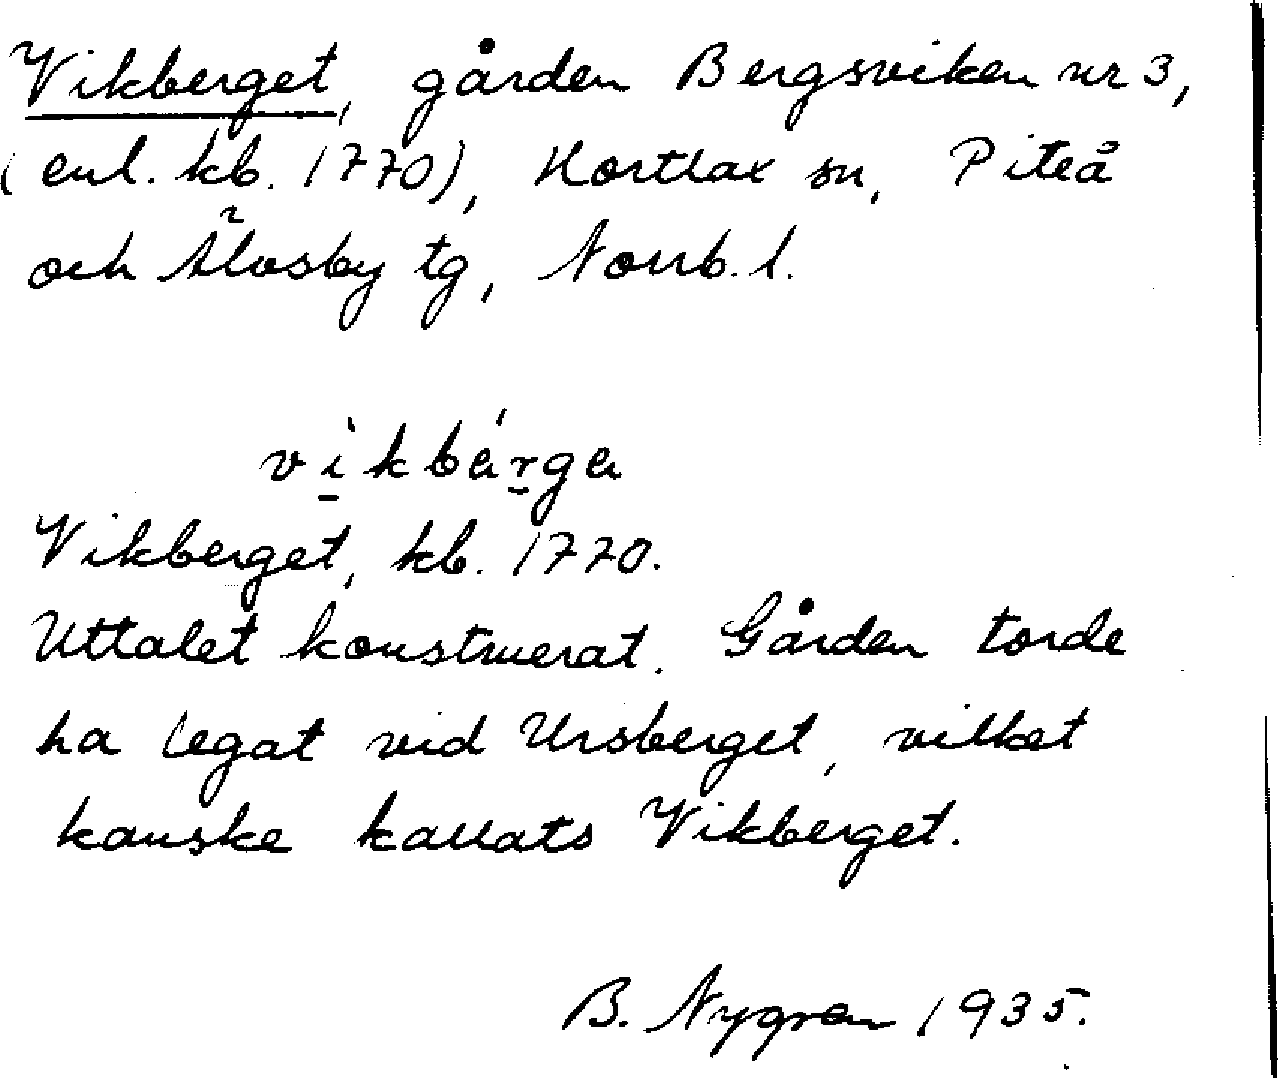 Vikberget, gården Bergsviken nr 3,
(enl. kb. 1770), Hortlax sn, Piteå
och Älvsby tg, Norrb. l.
vìkbárga
Vikberget, kb. 1770.
Uttalet konstruerat. Gården torde
ha legat vid Ursberget, vilket
kanske kallats Vikberget.
B. Nygren 1935.